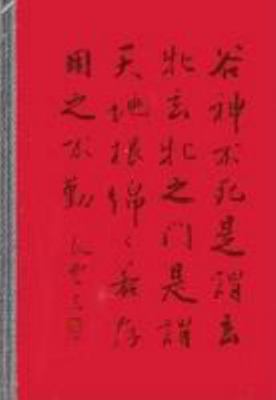 谷神不死是謂玄
牝玄牝之门是謂
天地根绵〻若存
用之不勤